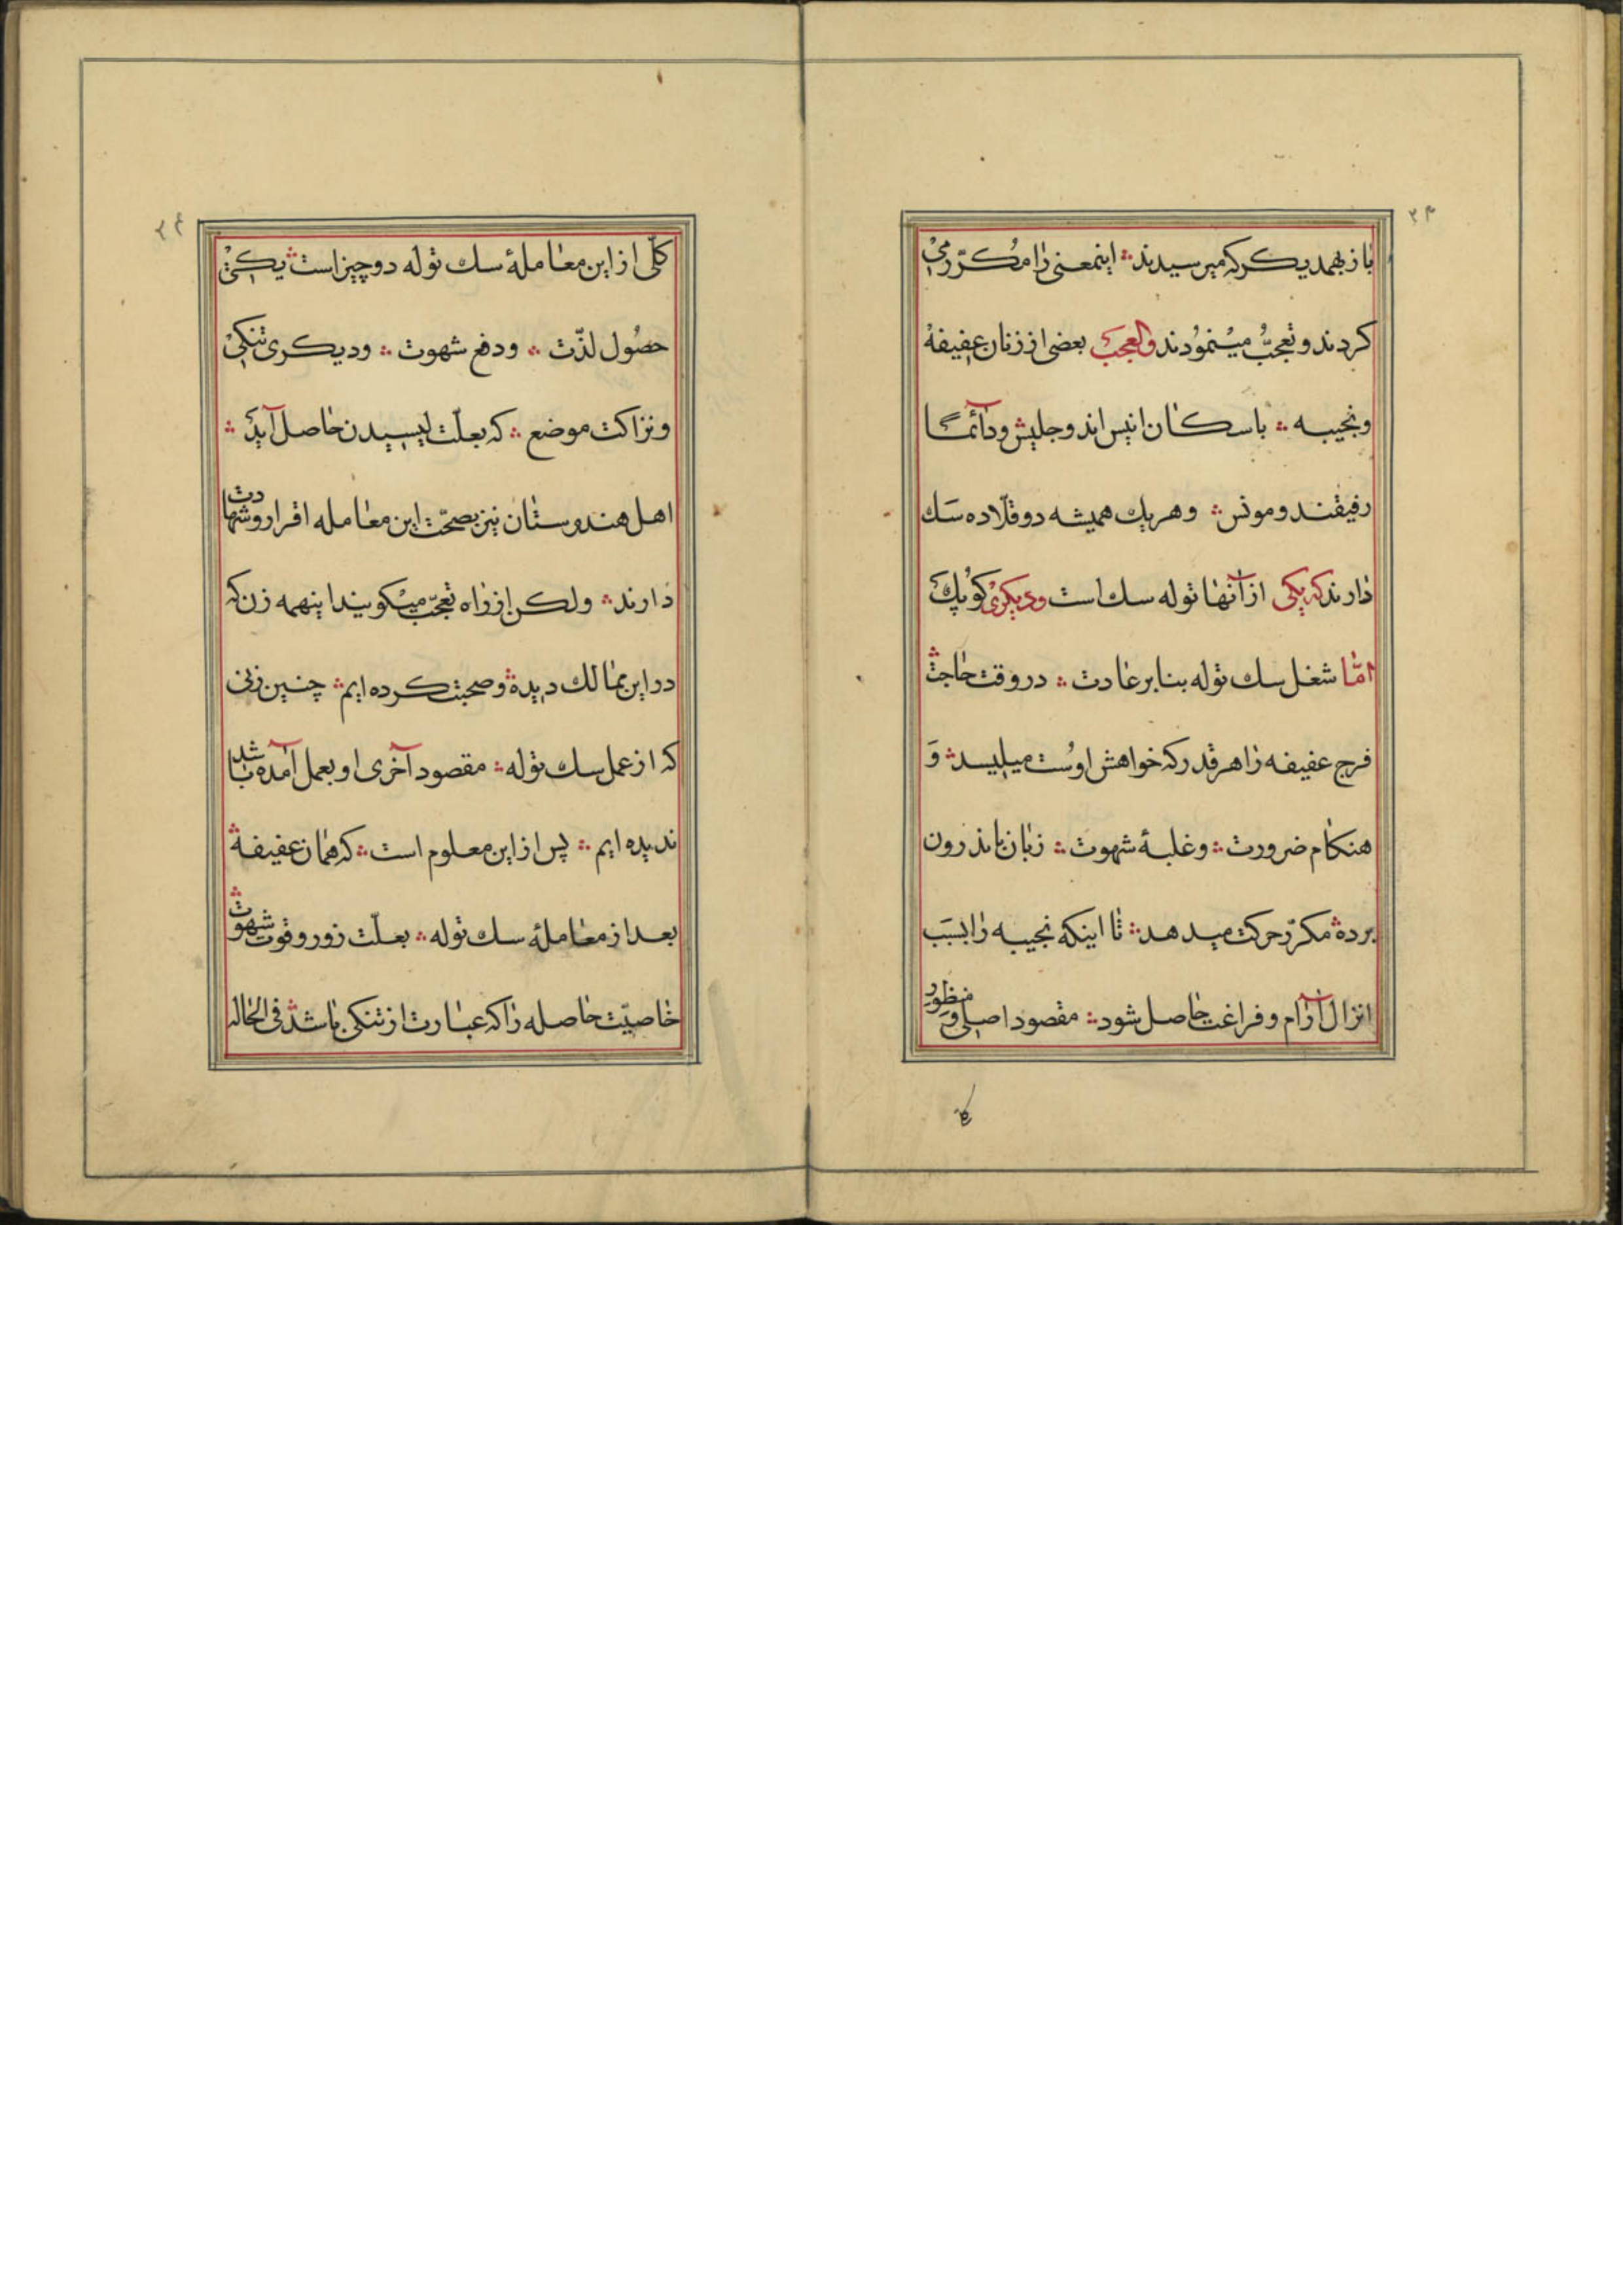 ۲۳
باز بهمدیکر که میرسیدند ؞ اینمعنی را مکرّر می
کردند و تعجّب مینمودند والعجب بعضی از زنان عفیفهٔ
و نجیبه ؞ با سکان انیس اند و جلیس و دائما
رفیقند و مونس ؞ و هر یك همیشه دو قلّاده سك
دارند که یکی از آنها توله سك است و دیکری کوپك
امّا شغل سك توله بنا بر عادت ؞ در وقت حاجت ؞
فرج عفیفه را هر قدر که خواهش اوست میلیسد ؞ و
هنکام ضرورت ؞ و غلبهٔ شهوت ؞ زبان باندرون
برده ؞ مکرّر حرکت میدهد ؞ تا اینکه نجیبه را بسبب
انزال آرام و فراغت حاصل شود ؞ مقصود اصلی و منظور
کلّی
۲۴
کلّی از این معاملهٔ سك توله دو چیز است ؞ یکی
حصول لذّت ؞ و دفع شهوت ؞ و دیکری تنکی
و نزاکت موضع ؞ که بعلّت لیسیدن حاصل آید ؞
اهل هندوستان نیز بصحّت این معامله اقرار و شهادت
دارند ؞ ولکن از راه تعجّب میکویند اینهمه زن که
در این ممالك دیده ؞ و صحبت کرده ایم ؞ چنین زنی
که از عمل سك توله ؞ مقصود آخری او بعمل آمده باشد
ندیده ایم ؞ پس از این معلوم است ؞ که همان عفیفهٔ
بعد از معاملهٔ سك توله ؞ بعلّت زور و قوت شهوت ؞
خاصیّت حاصله را که عبارت از تنکی باشد ؞ فی الحاله